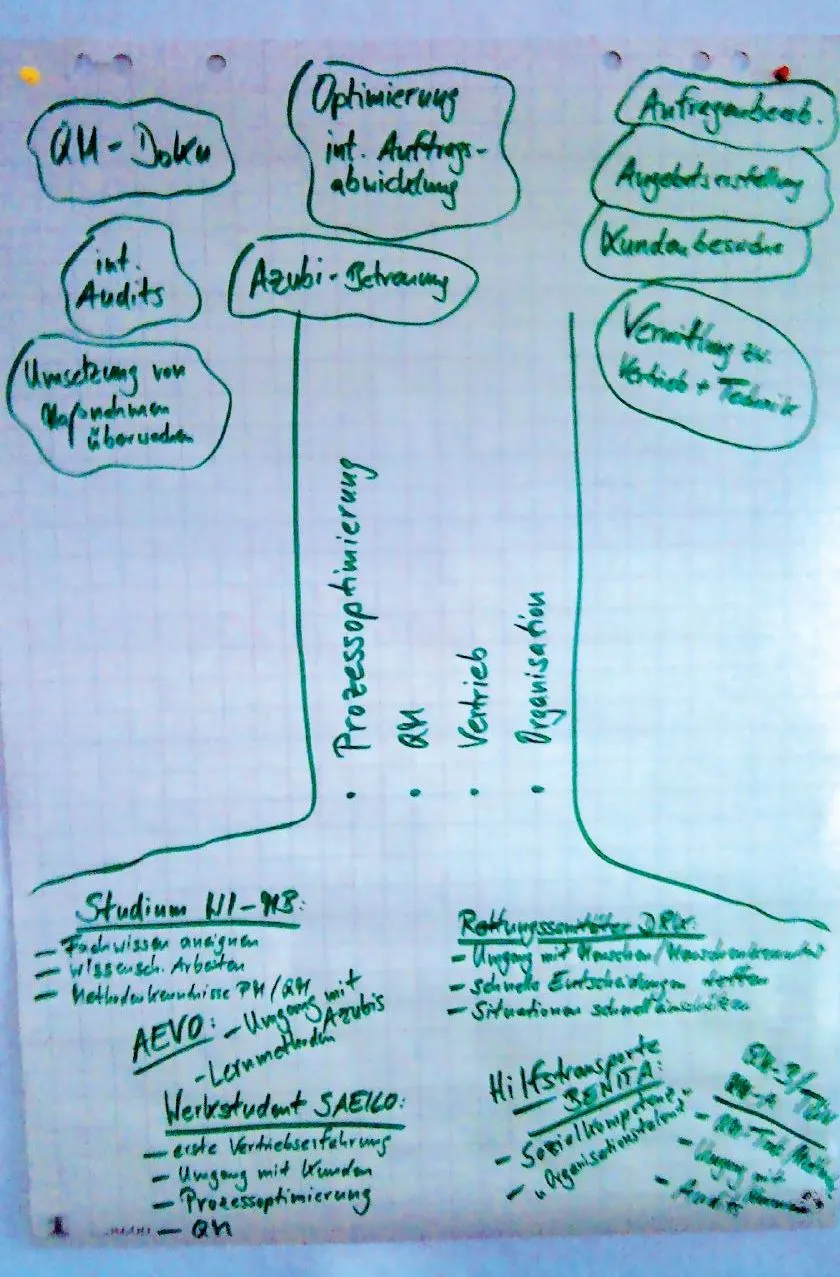 QM-Doku
Optimierung
int. Auftrags-
abwicklung
Anfragenbearb.
Angebotserstellung
Kundenbesuche
int.
Audits
Azubi-Betreuung
Umsetzung von
Maßnahmen
überwachen
Vermittlung zw.
Vertrieb + Technik
• Prozessoptimierung
• QM
• Vertrieb
• Organisation
Studium WI-MB:
– Fachwissen aneignen
– Wissensch. Arbeiten
– Methodenkenntnisse PM/QM
AEVO: – Umgang mit
Azubis
– Lernmethoden
Werkstudent
– erste Vertriebserfahrung
– Umgang mit Kunden
– Prozessoptimierung
– QM
Rettungssanitäter DRK:
– Umgang mit Menschen/Menschenkenntnis
– schnelle Entscheidungen treffen
– Situationen schnell einschätzen
Hilfstransporte
BENITA:
– Sozialkompetenz
– Organisationstalent
– Umgang mit
– Audits